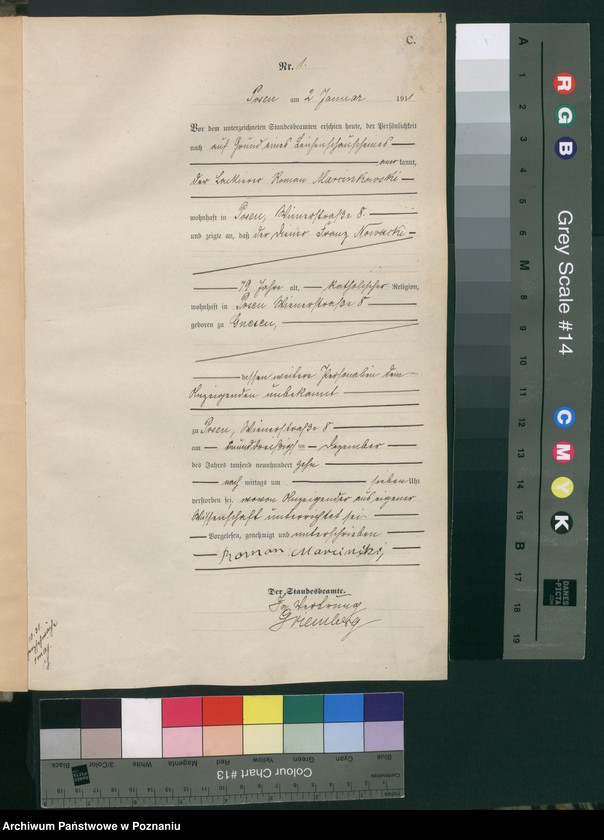 1
C.
Nr. 1.
Posen am 2 Januar 1911
Vor dem unterzeichneten Standesbeamten erschien heute, der Persönlichkeit
nach auf Grund eines Leichenschauscheines
anerkannt,
der Lackierer Roman Marcinkowski
wohnhaft in Posen, Wienerstraße 8.
und zeigte an, daß der Diener Franz Nowacki
79 Jahre alt, katholischer Religion,
wohnhaft in Posen Wienerstraße 8
geboren zu Gnesen,
dessen weitere Personalien dem
Anzeigenden unbekannt
zu Posen, Wienerstraße 8
am Dezember
des Jahres tausend neunhundert zehn
nach mittags um sieben Uhr
verstorben sei, wovon Anzeigender aus eigener
Wissenschaft unterrichtet sei.
Vorgelesen, genehmigt und unterschrieben
Roman
Der Standesbeamte.
In Vertretung
A 1 2 3 4 5 6 M 8 9 10 11 12 13 14 15 B 17 18 19
R G B
Grey Scale #14
C M Y K
DANES
PICTA
Black 3/Color White Magenta Red Yellow Green Cyan Blue
Colour Chart #13
Archiwum Państwowe w Poznaniu